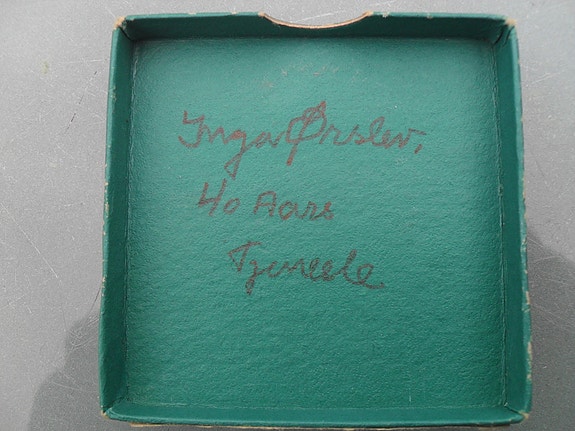 Inga Ørslev.
40 Aars
Tjeneste